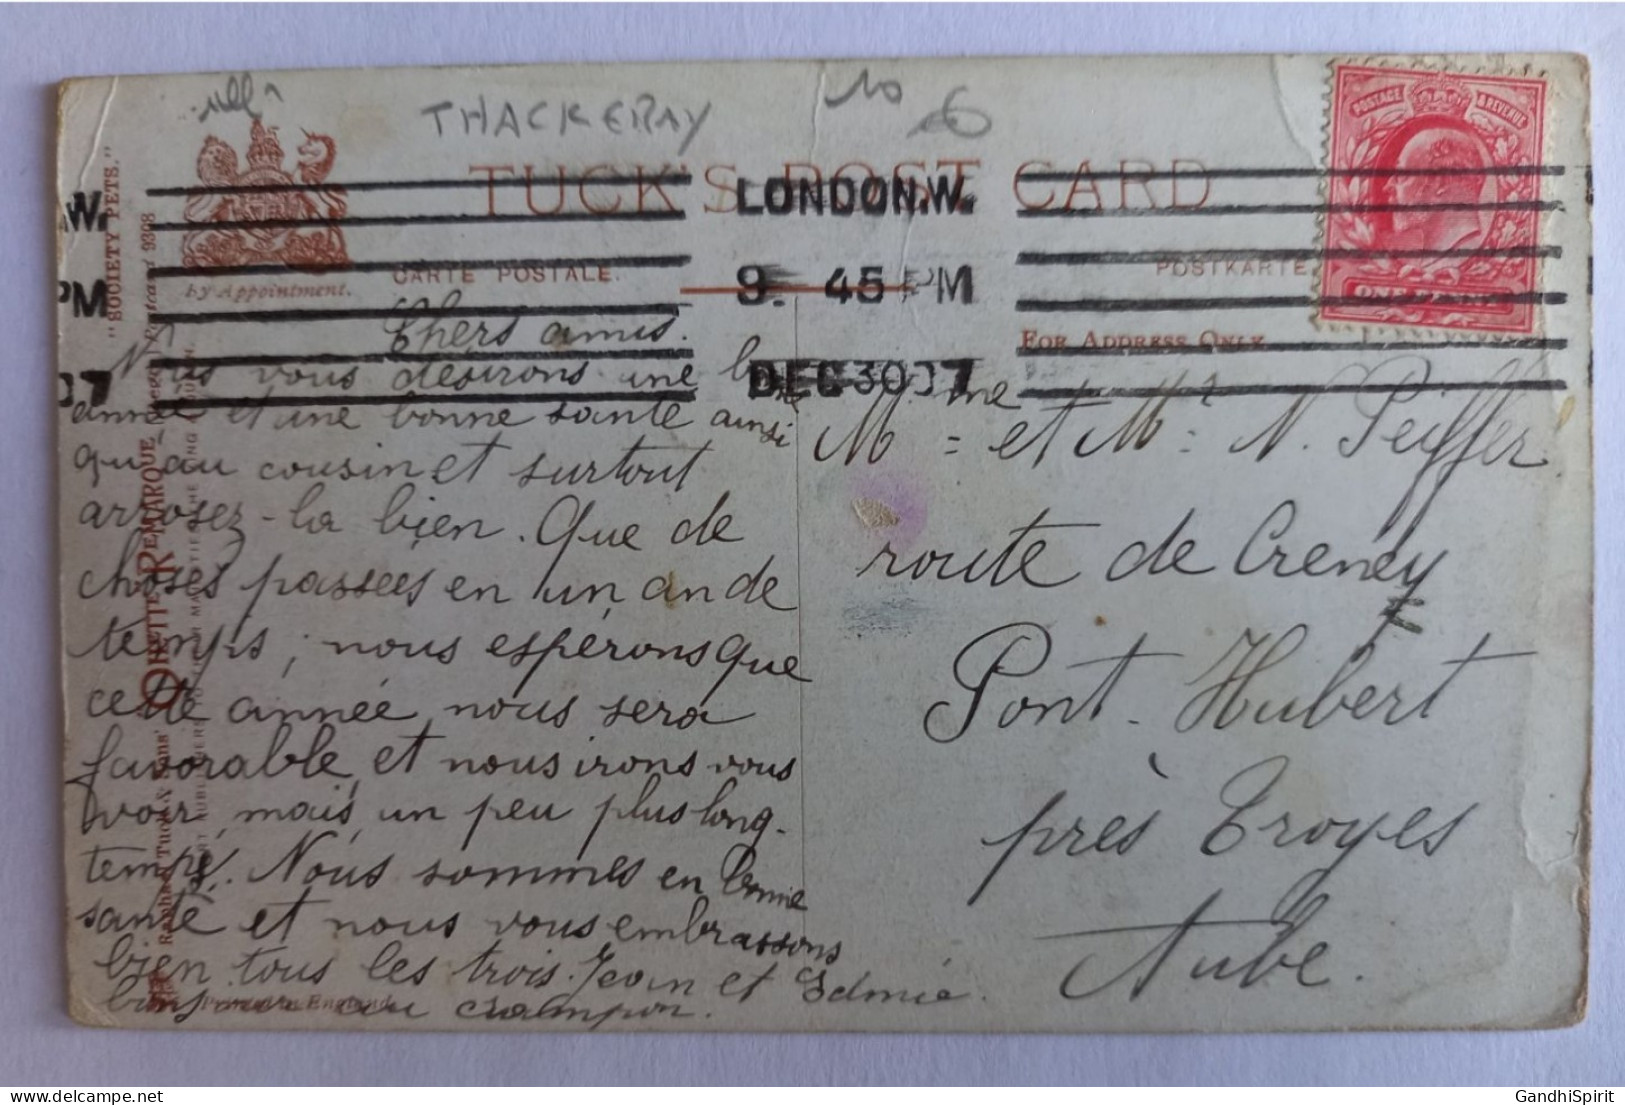 THACKERAY
10
6
TUCK'S POST CARD
LONDON.W.
9. 45 PM
DEC 30 07
W.
PM
07
POSTAGE & REVENUE
ONE PENNY
CARTE POSTALE.
POSTKARTE
by Appointment.
FOR ADDRESS ONLY.
"SOCIETY PETS."
Postcard 9308
OILETTE REMARQUE
Raphael Tuck & Sons'
Printed in England
Chers amis.
Nous vous désirons une bonne
année et une bonne santé ainsi
qu'au cousin et surtout
arrosez-la bien. Que de
choses passées en un an de
temps; nous espérons que
cette année nous sera
favorable et nous irons vous
voir, mais un peu plus long-
temps. Nous sommes en bonne
santé et nous vous embrassons
bien tous les trois. Jean et Edmée.
au crampon.
Mme et Mr N. Peiffer
route de Creney
Pont-Hubert
près Troyes
Aube.
GandhiSpirit
delcampe.net